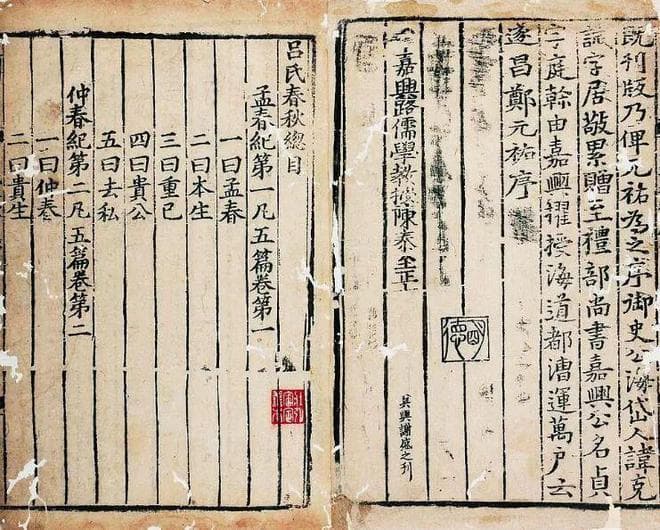 既刊版乃俾元祐為之序御史公海岱人諱克
誠字居敬累贈至禮部尚書嘉興公名貞
字庭榦由嘉興擢授海道都漕運萬户云
遂昌鄭元祐序
嘉興路儒學教授陳泰至正
吳興謝盛之刊
呂氏春秋總目
孟春紀第一凡五篇卷第一
一曰孟春
二曰本生
三曰重已
四曰貴公
五曰去私
仲春紀第二凡五篇卷第二
一曰仲春
二曰貴生